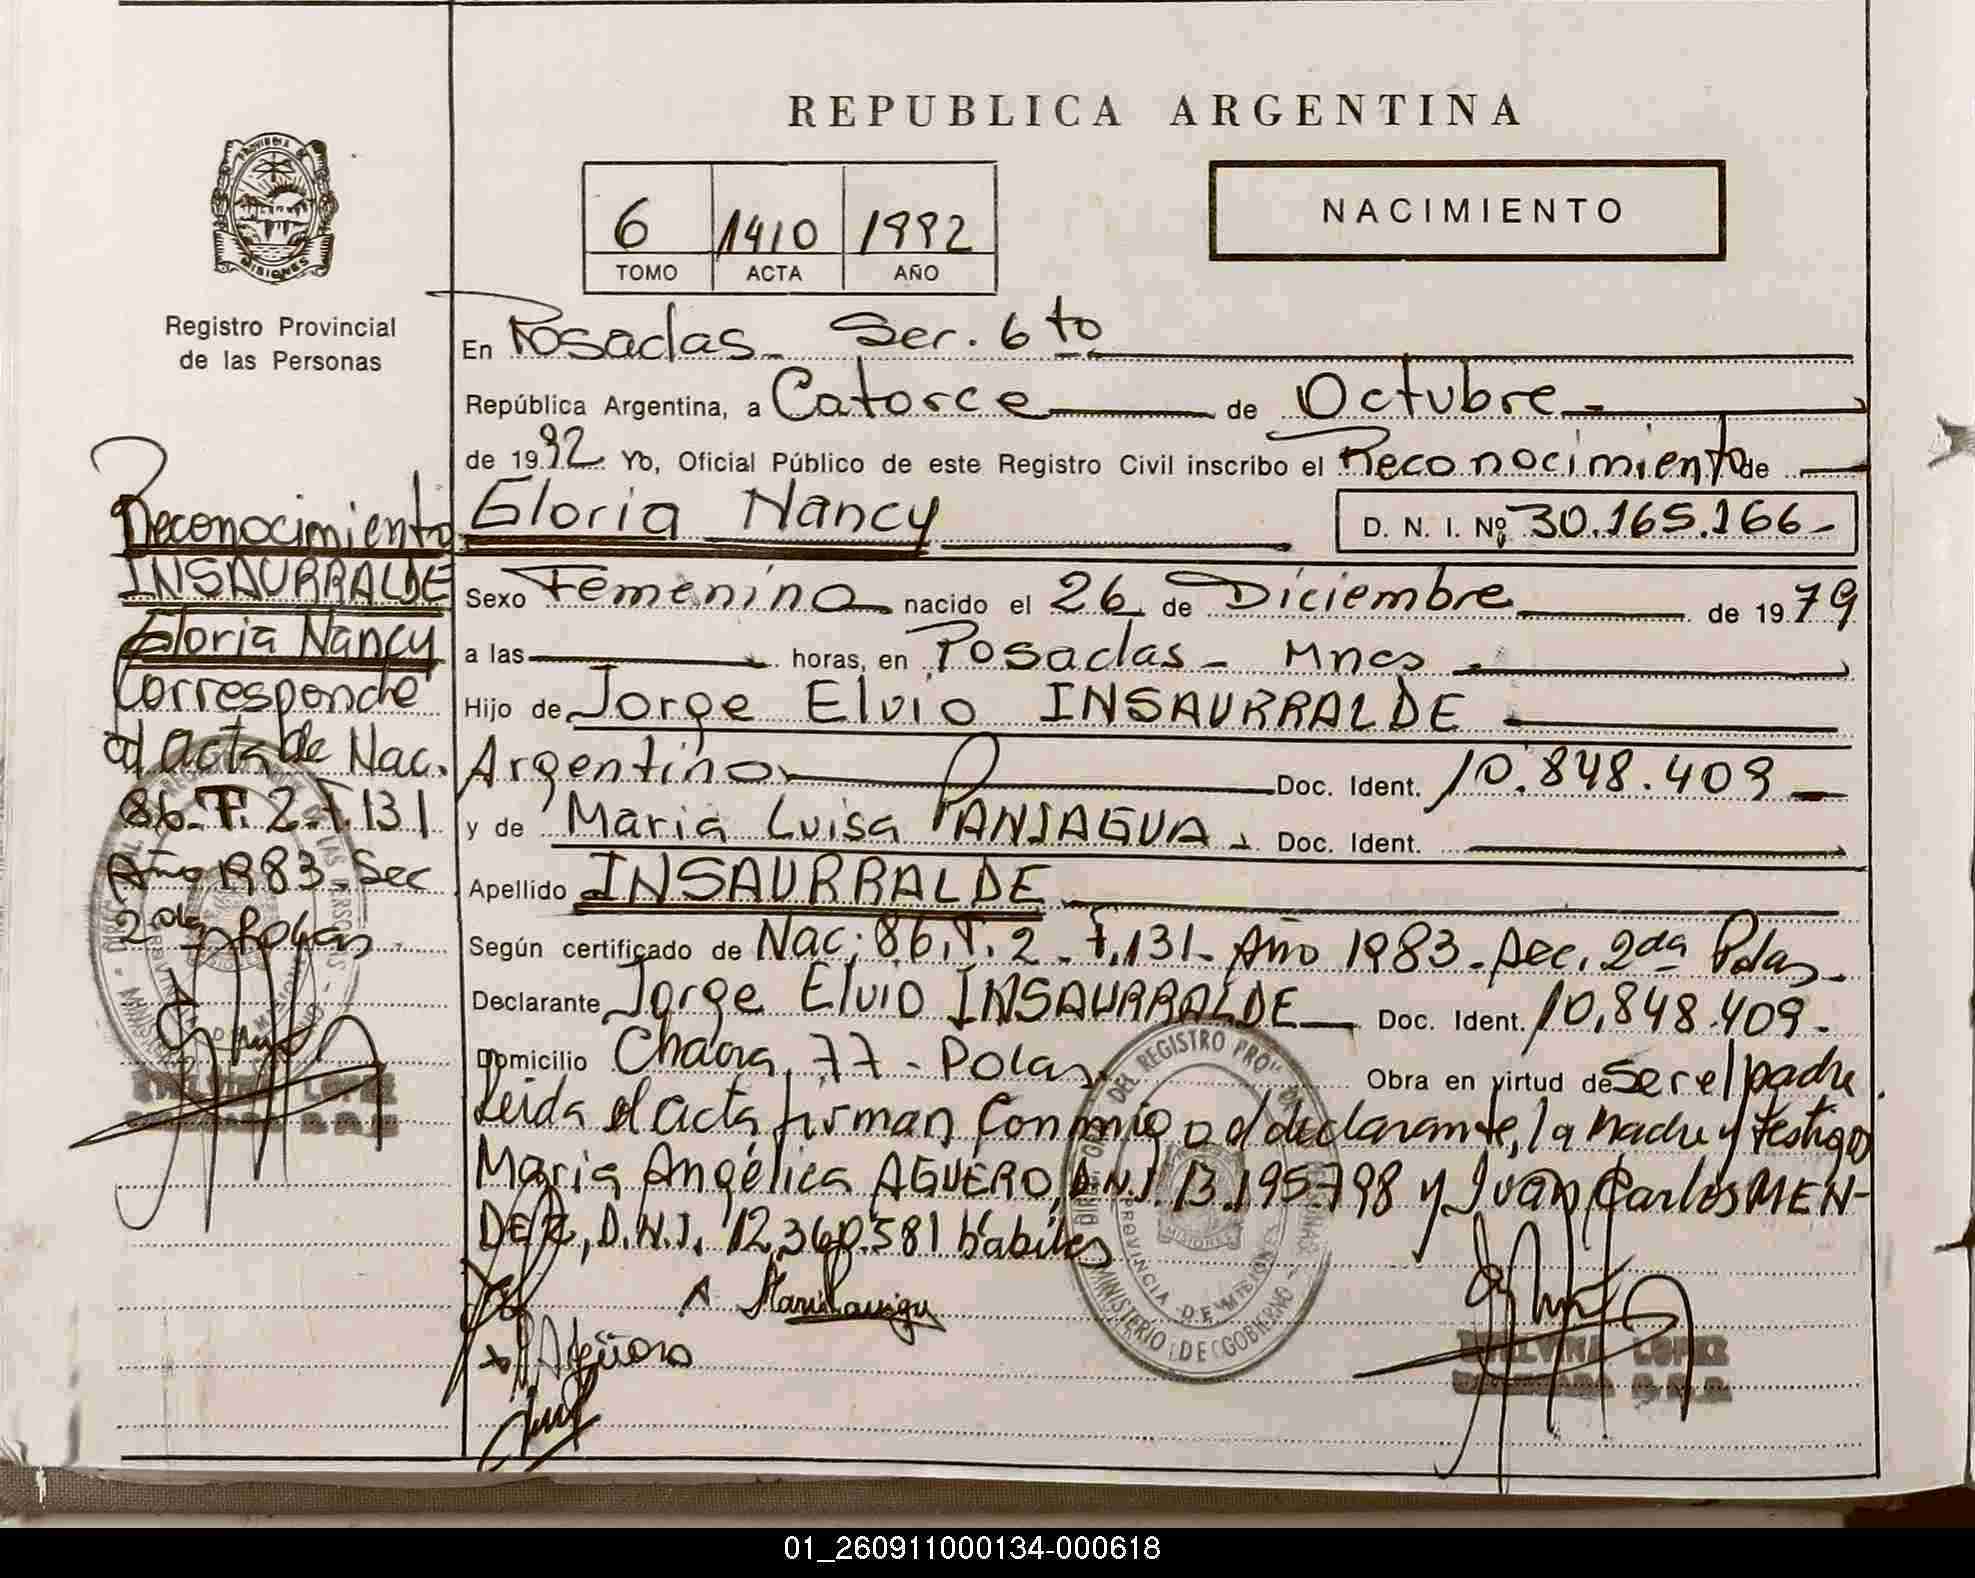 REPUBLICA ARGENTINA
PROVINCIA DE
MISIONES
Registro Provincial
de las Personas
6 1410 1992
TOMO ACTA AÑO
NACIMIENTO
En Posadas - Sec. 6 to
República Argentina, a Catorce de Octubre
de 1992. Yo, Oficial Público de este Registro Civil inscribo el Reconocimiento de
Gloria Nancy D. N. I. Nº 30.165.166-
Sexo Femenino nacido el 26 de Diciembre de 1979
a las horas, en Posadas - Mnes
Hijo de Jorge Elvio INSAURRALDE
Argentino Doc. Ident. 10.848.409
y de Maria Luisa PANIAGUA Doc. Ident.
Apellido INSAURRALDE
Según certificado de Nac. 86. T. 2 - F. 131 - Año 1983 - Sec. 2da Pdas
Declarante Jorge Elvio INSAURRALDE Doc. Ident. 10.848.409.
Domicilio Chacra 77 - Pdas Obra en virtud de ser el padre.
Leida el acta firman conmigo el declarante, la madre y testigos
Maria Angélica AGUERO, D.N.I. 13.195.798 y Juan Carlos MEN-
DEZ, D.N.I. 12.360.581 hábiles
Reconocimiento
INSAURRALDE
Gloria Nancy
Corresponde
al acta de Nac.
86. T. 2 - F. 131
Año 1983 - Sec
2da Pdas
LOPEZ
DEL REGISTRO PROV
MINISTERIO DE GOBIERNO
PROVINCIA DE MISIONES
LOPEZ
01_260911000134-000618